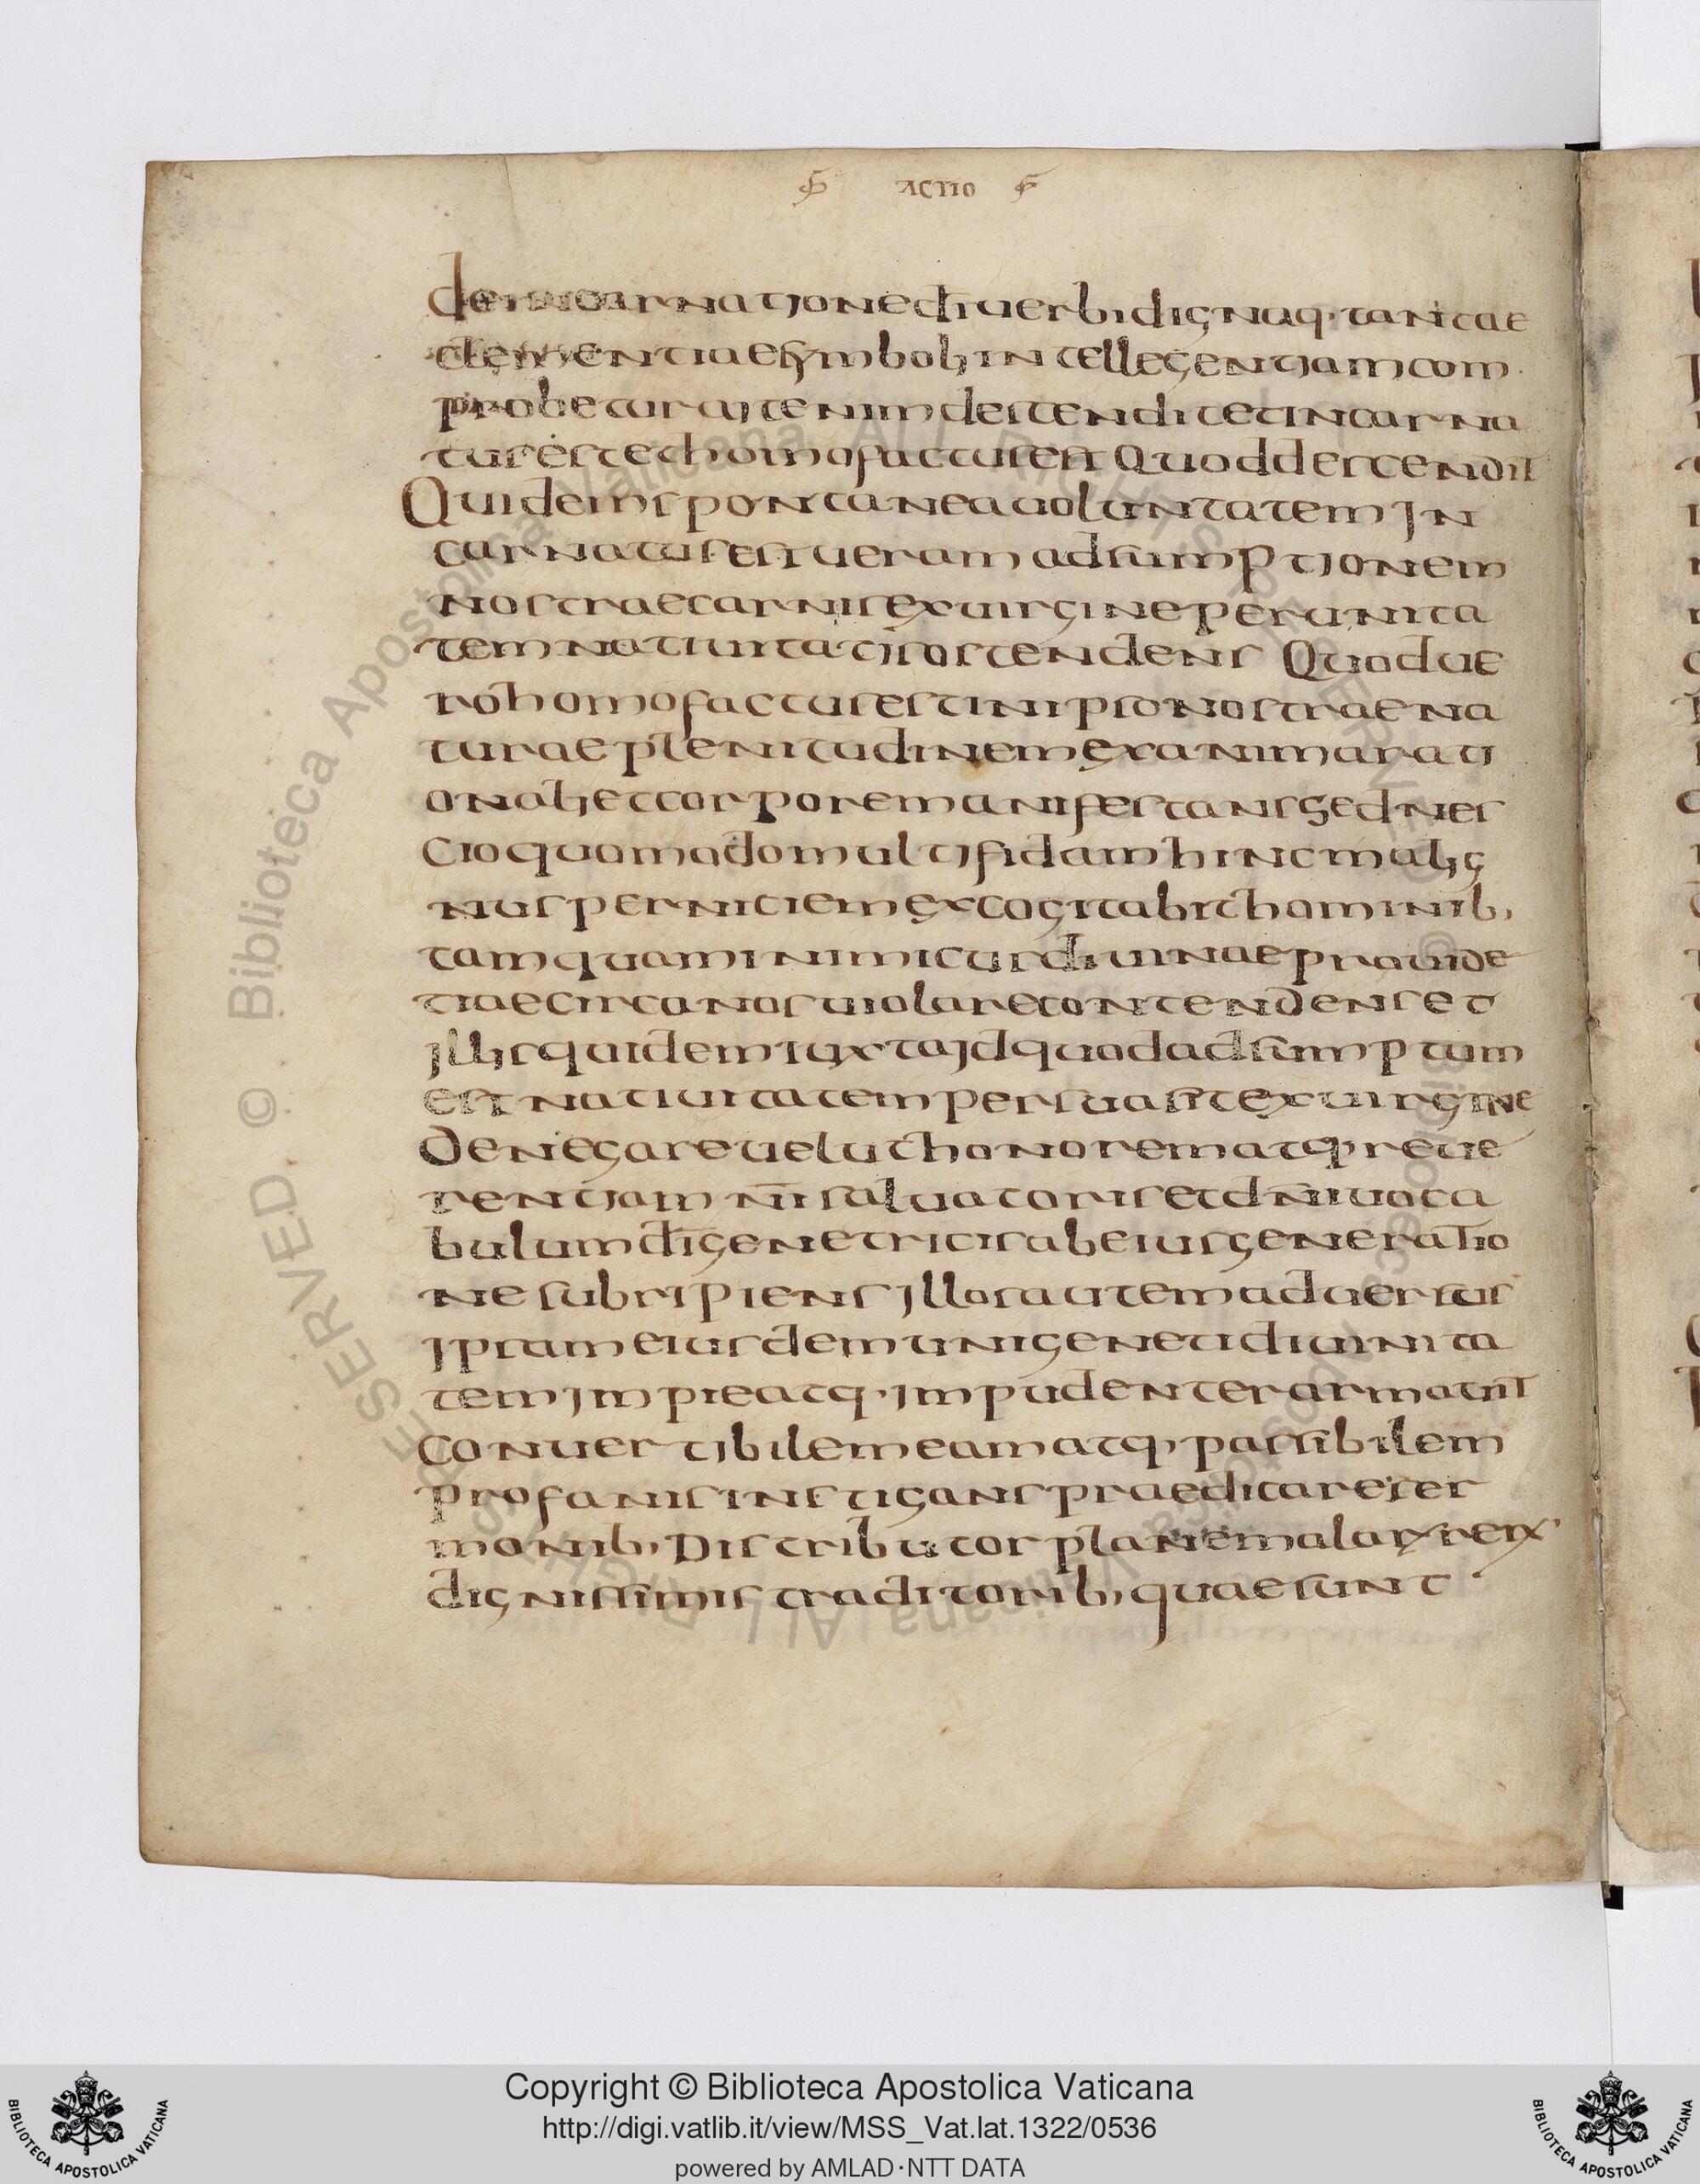 ACTIO
de incarnatione di uerbi dignaq· tantae
clementiae symboli intellegentiam com
probetur ait enim descendit et incarna
tus est et homo factus est Quod descendit
Quidem spontanea uoluntatem In
carnatus est ueram adsumptionem
nostrae carnis ex uirgine per unita
tem natiuitatis ostendens Quod ue
ro homo factus est in ipso nostrae na
turae plenitudinem ex anima rati
onali et corpore manifestans sed nes
cio quomodo multifidam hinc malig
nus perniciem excogitabit hominib,
tamquam inimicus diuinae prouide
tiae circa nos uiolare contendens et
illis quidem iuxta id quod adsumptum
est natiuitatem persuasit ex uirgine
Denegare uelut honorem atq, reue
rentiam ni saluatoris et dni uoca
bulum di genetricis ab eius generatio
ne subripiens illos autem aduersus
ipsam eiusdem unigeneti diuinita
tem impie atq· impudenter armauit
Conuertibilem eam atq, passibilem
profanis instigans praedicare ser
monib, Distributor plane malorum rerum
dignissimis traditorib, quae sunt
Copyright © Biblioteca Apostolica Vaticana
http://digi.vatlib.it/view/MSS_Vat.lat.1322/0536
powered by AMLAD·NTT DATA
BIBLIOTECA APOSTOLICA VATICANA
BIBLIOTECA APOSTOLICA VATICANA